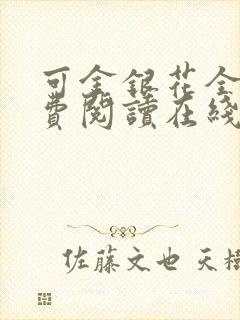 可金銀花全
費閱讀在綫
佐藤文也 天樹